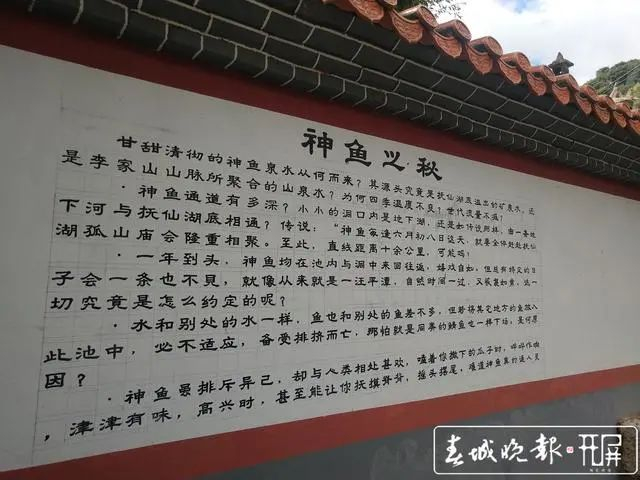 神鱼之秋
甘甜清彻的神鱼泉水从何而来?其源头究竟是抚仙湖底溢出的矿泉水,还
是李家山山脉所聚合的山泉水?为何四季温度不变?世代流量不减?
·神鱼通道有多深?小小的洞口内是地下湖,还是如传说那样,由一条地
下河与抚仙湖底相通?传说:“神鱼每逢六月初八日这天,就要全体赴赴抚仙
湖孤山庙会隆重相聚。至此,直线距离十余公里,可能吗?
·一年到头,神鱼均在池内与洞中来回往返,嬉戏自如,但总有特定的日
子会一条也不見,就像从来就是一汪平潭,自然时间一过,又恢复如常,这一
切究竟是怎么约定的呢?
·水和别处的水一样,鱼也和别处的鱼差不多,但若将其它地方的鱼放入
此池中,必不适应,备受排挤而亡,那怕就是同类的鱼也一样下场,是何原
因?
·神鱼虽排斥异己,却与人类相处甚欢,嗑着你撒下的瓜子时,哗哗作响
,津津有味,高兴时,甚至能让你抚摸脊背,摇头摆尾,难道神鱼真的通人灵
春城晚报·开屏
NEWS